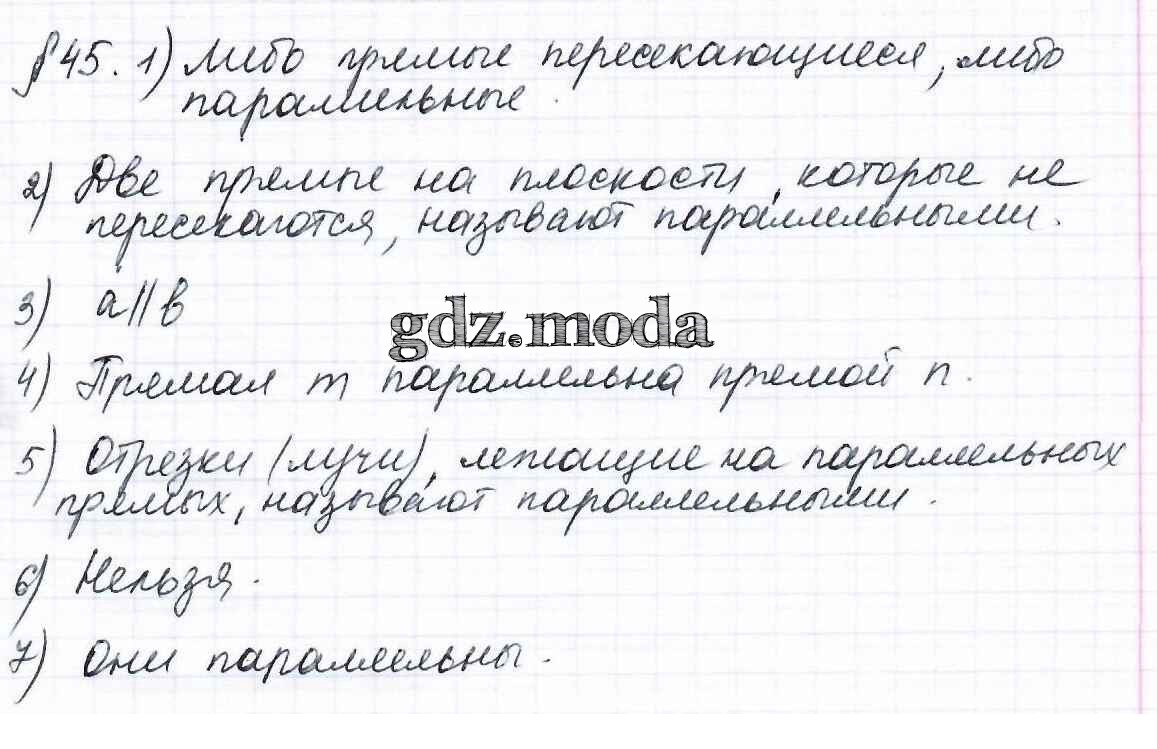 § 45. 1) Либо прямые пересекающиеся, либо
параллельные.
2) Две прямые на плоскости, которые не
пересекаются, называют параллельными.
3) a || b
gdz.moda
4) Прямая m параллельна прямой n.
5) Отрезки (лучи), лежащие на параллельных
прямых, называют параллельными.
6) Нельзя.
7) Они параллельны.